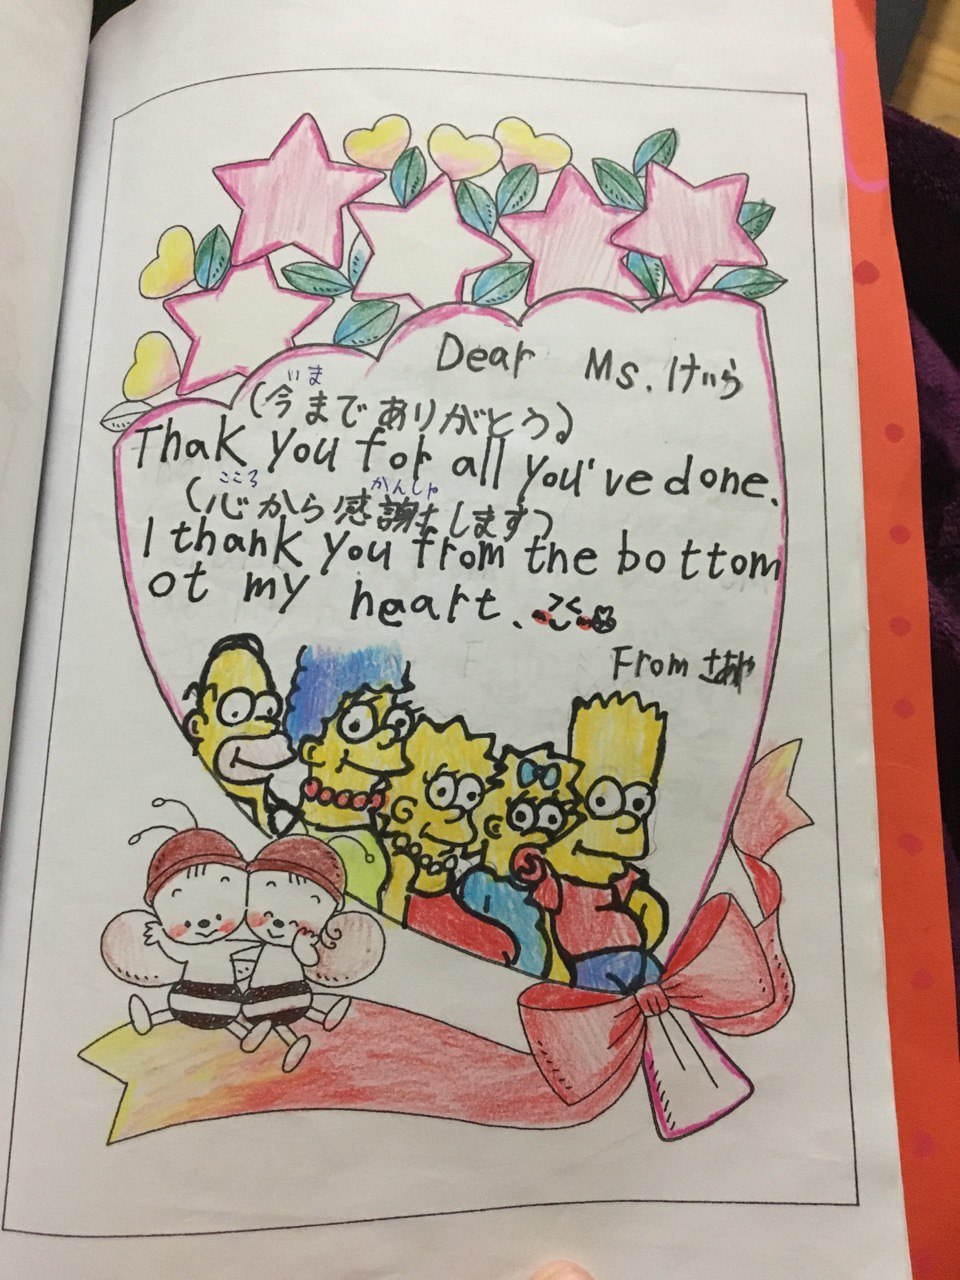 Dear Ms. けいら
いま
(今までありがとう)
Thak you for all you've done.
こころ かんしゃ
(心から感謝をします)
I thank you from the bottom
ot my heart.
From さあや